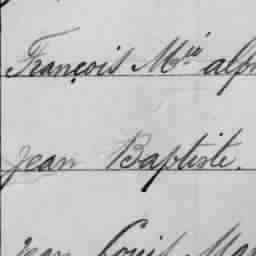 François Mie alph
Jean Baptiste.
Jean Louis Mar